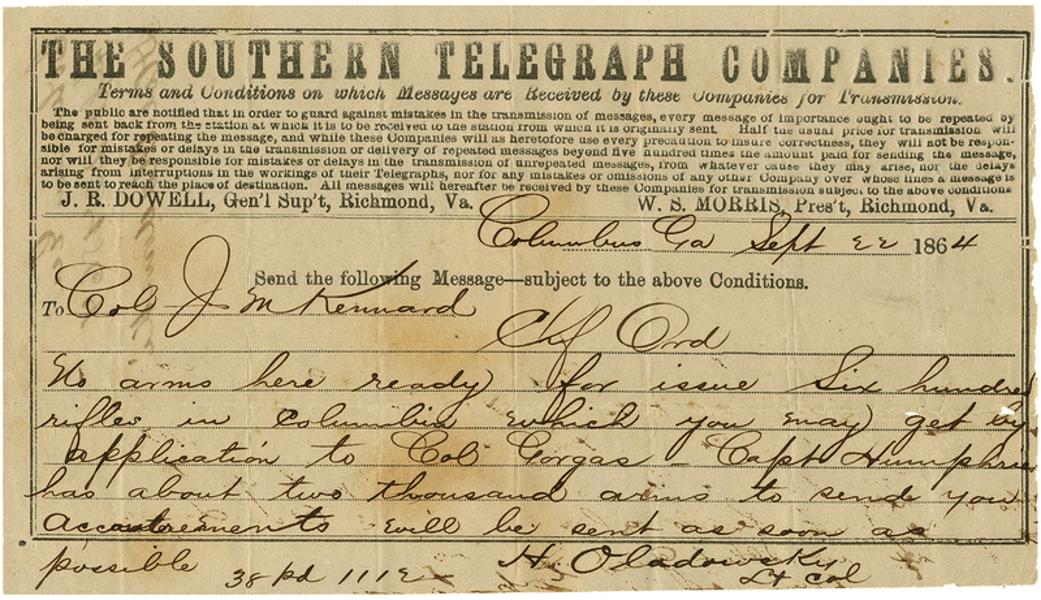 THE SOUTHERN TELEGRAPH COMPANIES.
Terms and Conditions on which Messages are Received by these Companies for Transmission.
The public are notified that in order to guard against mistakes in the transmission of messages, every message of importance ought to be repeated by
being sent back from the station at which it is to be received to the station from which it is originally sent. Half the usual price for transmission will
be charged for repeating the message, and while these Companies will as heretofore use every precaution to insure correctness, they will not be respon-
sible for mistakes or delays in the transmission or delivery of repeated messages beyond five hundred times the amount paid for sending the message,
nor will they be responsible for mistakes or delays in the transmission of unrepeated messages, from whatever cause they may arise, nor the delays
arising from interruptions in the workings of their Telegraphs, nor for any mistakes or omissions of any other Company over whose lines a message is
to be sent to reach the place of destination. All messages will hereafter be received by these Companies for transmission subject to the above conditions
J. R. DOWELL, Gen'l Sup't, Richmond, Va. W. S. MORRIS, Pres't, Richmond, Va.
Columbus Ga Sept 22 1864
Send the following Message—subject to the above Conditions.
To Col J M Kennard
Chf Ord
No arms here ready for issue Six hundred
rifles in Columbia which you may get by
application to Col Gorgas - Capt Humphries
has about two thousand arms to send you
accoutrements will be sent as soon as
possible 38 pd 1112 H. Oladowsky
Lt Col